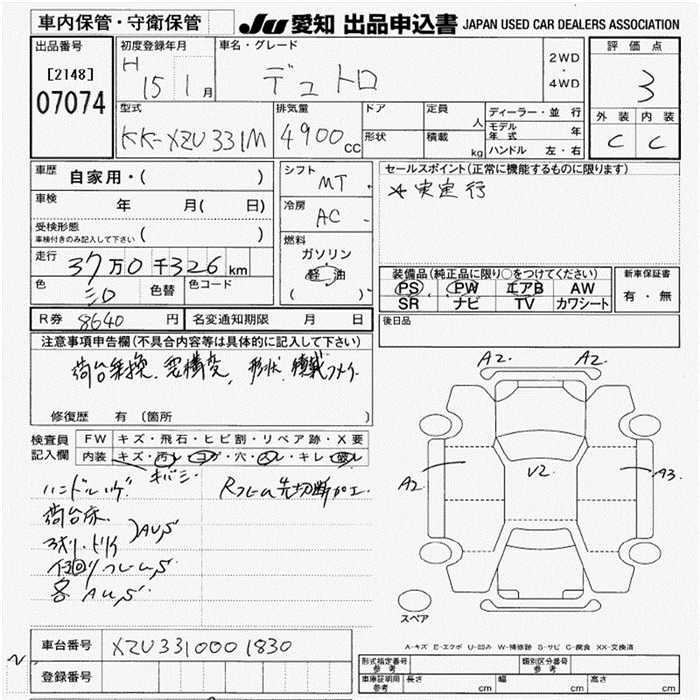 車内保管・守衛保管
JU 愛知 出品申込書 JAPAN USED CAR DEALERS ASSOCIATION
出品番号
[2148]
07074
初度登録年月
H 15 1 月
車名・グレード
デュトロ
2WD
・
4WD
評価点
3
外装 内装
C C
型式
KK-XZU331M
排気量
4900cc
ドア
形状
定員 人
積載 kg
ディーラー・並行
モデル年式 年
ハンドル 左・右
車歴
自家用・( )
車検
年 月( 日)
受検形態
車検付きのみ記入して下さい ( )
走行
37万0千326km
色
シロ
色替
色コード
R券 8640 円
名変通知期限 月 日
シフト
MT
冷房
AC
燃料
ガソリン
軽油
( )
セールスポイント(正常に機能するものに限ります)
*実走行
装備品(純正品に限り○をつけてください)
PS PW エアB AW
SR ナビ TV カワシート
新車保証書
有・無
後日品
注意事項申告欄(不具合内容等は具体的に記入して下さい)
荷台乗換、要構変、形状、積載
修復歴 有 (箇所 )
検査員
記入欄
FW キズ・飛石・ヒビ割・リペア跡・X要
内装 キズ・汚レ・コゲ・穴・スレ・キレ・破レ
キバミ
ハンドルハゲ
荷台床
Rフレーム先切断加工
A2. A2.
A2 V2 A3
スペア
A-キズ E-エクボ U-凹み W-補修跡 S-サビ C-腐食 XX-交換済
車台番号 XZU3310001830
登録番号
形式指定番号 参考
類別区分番号 参考
車庫証明用 参考
長さ cm
幅 cm
高さ cm